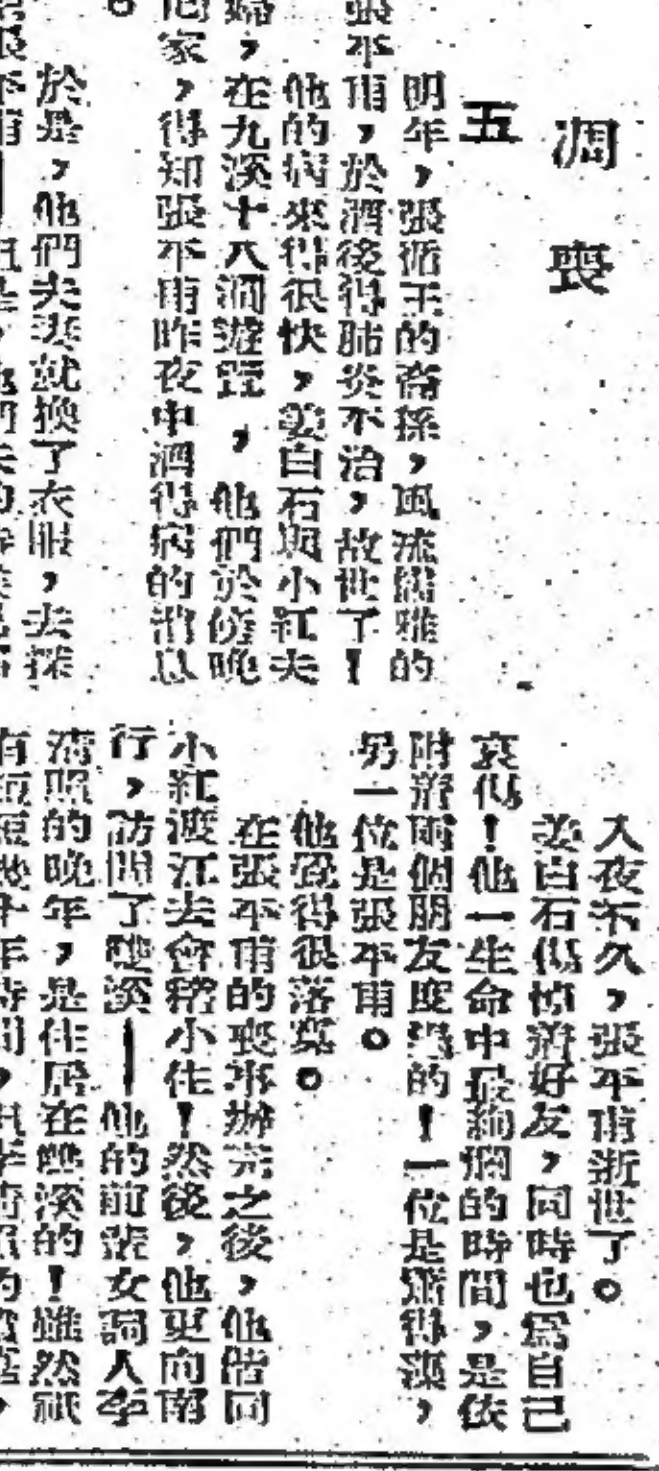 凋喪
五
明年，張循王的裔孫，風流儒雅的
張平甫，於酒後得肺炎不治，故世了！
他的病來得很快，姜白石與小紅夫
婦，在九溪十八澗遊蹤，他們於傍晚
家，得知張平甫昨夜中酒得病的消息
。
於是，他們夫妻就換了衣服，去探
入夜不久，張平甫逝世了。
姜白石傷悼着好友，同時也爲自己
哀傷！他一生命中最絢爛的時間，是依
附着兩個朋友度過的！一位是蕭得藻，
另一位是張平甫。
他覺得很落寞。
在張平甫的喪事辦完之後，他偕同
小紅渡江去會稽小住！然後，他更向南
行，訪問了雙溪——他的前輩女詞人李
清照的晚年，是住居在雙溪的！雖然祇